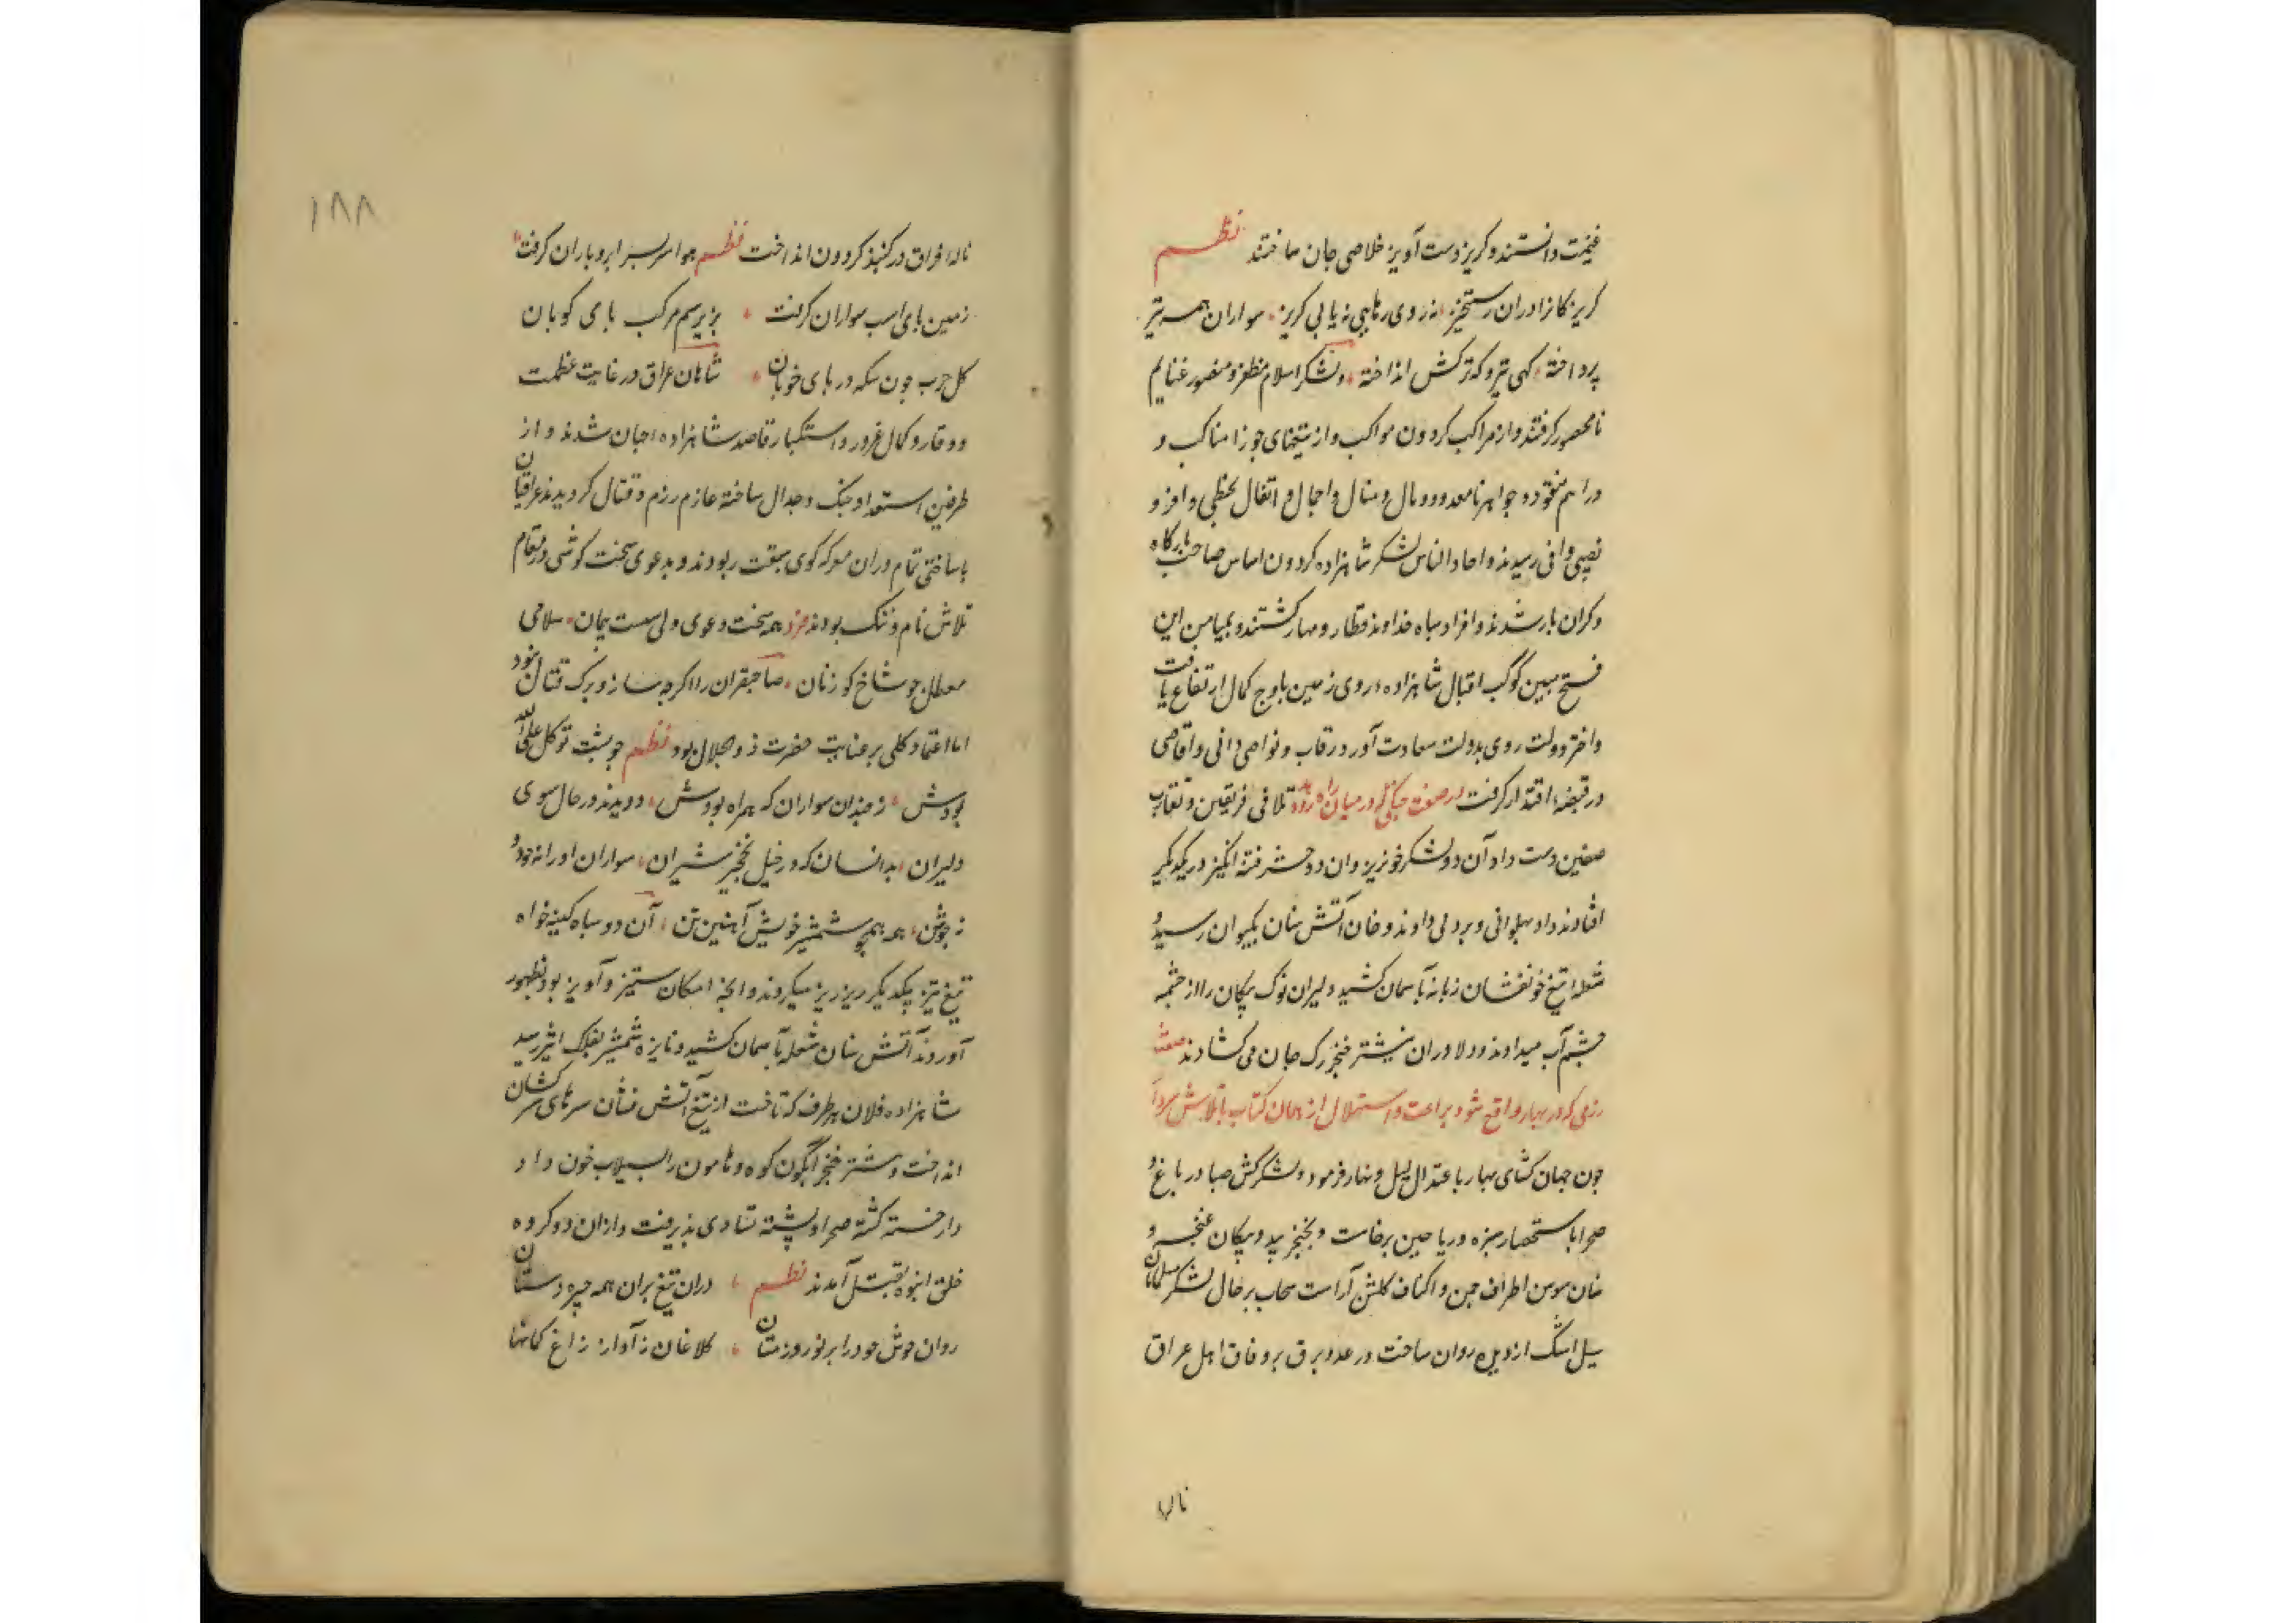 غنیمت دانستند و کریز دست آویز خلاصی جان ساختند نظم
کریز کازا دران رستخیز نه روی رهایی نه پای کریز سواران همه تیر
پرداخته کهی تیر و که ترکش انداخته و لشکر اسلام مظفر و منصور غنایم
نامحصور کرفتند و از مراکب کردون مواکب و از تیغهای جوزا مناکب و
دراهم منقود و جواهر نامعدود و مال و منال و احمال و اثقال بحظی وافر و
نصیبی وافی رسیدند و احاد الناس لشکر شاهزاده کردون اساس صاحب بارکاه
و کران بار شدند و افراد سپاه خداوند قطار و مهار کشتند و بمیامن این
فتح مبین کوکب اقبال شاهزاده روی زمین باوج کمال ارتفاع یافت
و اختر دولت روی بدولت سعادت آورد رقاب و نواصی دانی و اقاصی
در قبضه اقتدار کرفت در صفت جنکی که در میان راه رو دهد تلاقی فریقین و تقارب
صفین دست داد آن دو لشکر خونریز وان دو حشر فتنه انکیز در یکدیکر
افتادند داد پهلوانی و پردلی دادند دخان آتش سنان بکیوان رسید و
شعله تیغ خونفشان زبانه بآسمان کشید دلیران نوک پیکان را از چشمه
چشم آب میدادند و دلاوران نیشتر خنجر رک جان می کشادند صفت
رزمی که در بهار واقع شود براعت و استهلال از همان کتاب
چون جهان کشای بهار باعتدال لیل و نهار فرمود و لشکرکش صبا در باغ و
صحرا باستحضار سبزه و ریاحین برخاست و بخنجر بید و پیکان غنچه و
سنان سوسن اطراف چمن و اکناف کلشن آراست سحاب بر حال لشکر سلطان
سیل اشک از دیده روان ساخت و رعد و برق بر وفاق اهل عراق
ناله
۱۸۸
ناله فراق در کنبذ کردون انداخت نظم هوا سربسر ابر و باران کرفت
زمین پای اسب سواران کرفت بزیر سم مرکب پای کوبان
کل چرب چون سکه در پای خوبان شاهان عراق در غایت عظمت
و وقار و کمال غرور و استکبار قاصد شاهزاده جهان شدند و از
طرفین استعداد جنک و جدال ساخته عازم رزم و قتال کردیدند عراقیان
باساختی تمام دران معرکه کوی سبقت ربودند و بدعوی سخت کوشی در مقام
تلاش نام و ننک بودند فرد همه سخت دعوی ولی سست پیمان سلاحی
معطل چو شاخ کوزنان صاحبقران را اکرچه ساز و برک قتال نبود
اما اعتماد کلی بر عنایت حضرت ذو الجلال بود نظم چو پشت توکل علی الله
بودش ز چندان سواران که همراه بودش دویدند در حال سوی
دلیران بدانسان که در خیل نخجیر شیران سواران او را نه خود و
نه جوشن همه همچو شمشیر خویش آهنین تن آن دو سپاه کینه خواه
تیغ تیز یکدیکر ریز ریز میکردند و انچه امکان ستیز و آویز بود بظهور
آوردند آتش سنان شعله بآسمان کشید و نایره شمشیر بفلک اثیر رسید
شاهزاده فلان بهر طرف که تاخت از تیغ آتش فشان سرهای سرکشان
انداخت و نشتر خنجر آبکون کوه و هامون را سیلاب خون داد
و از خسته کشته صحرا و پشته تساوی پذیرفت و ازان دو کروه
خلق انبوه بقتل آمدند نظم دران تیغ بران همه چیره دستان
روان خوش چو در ابر نوروز مستان کلاغان ز آواز زاغ کمانها